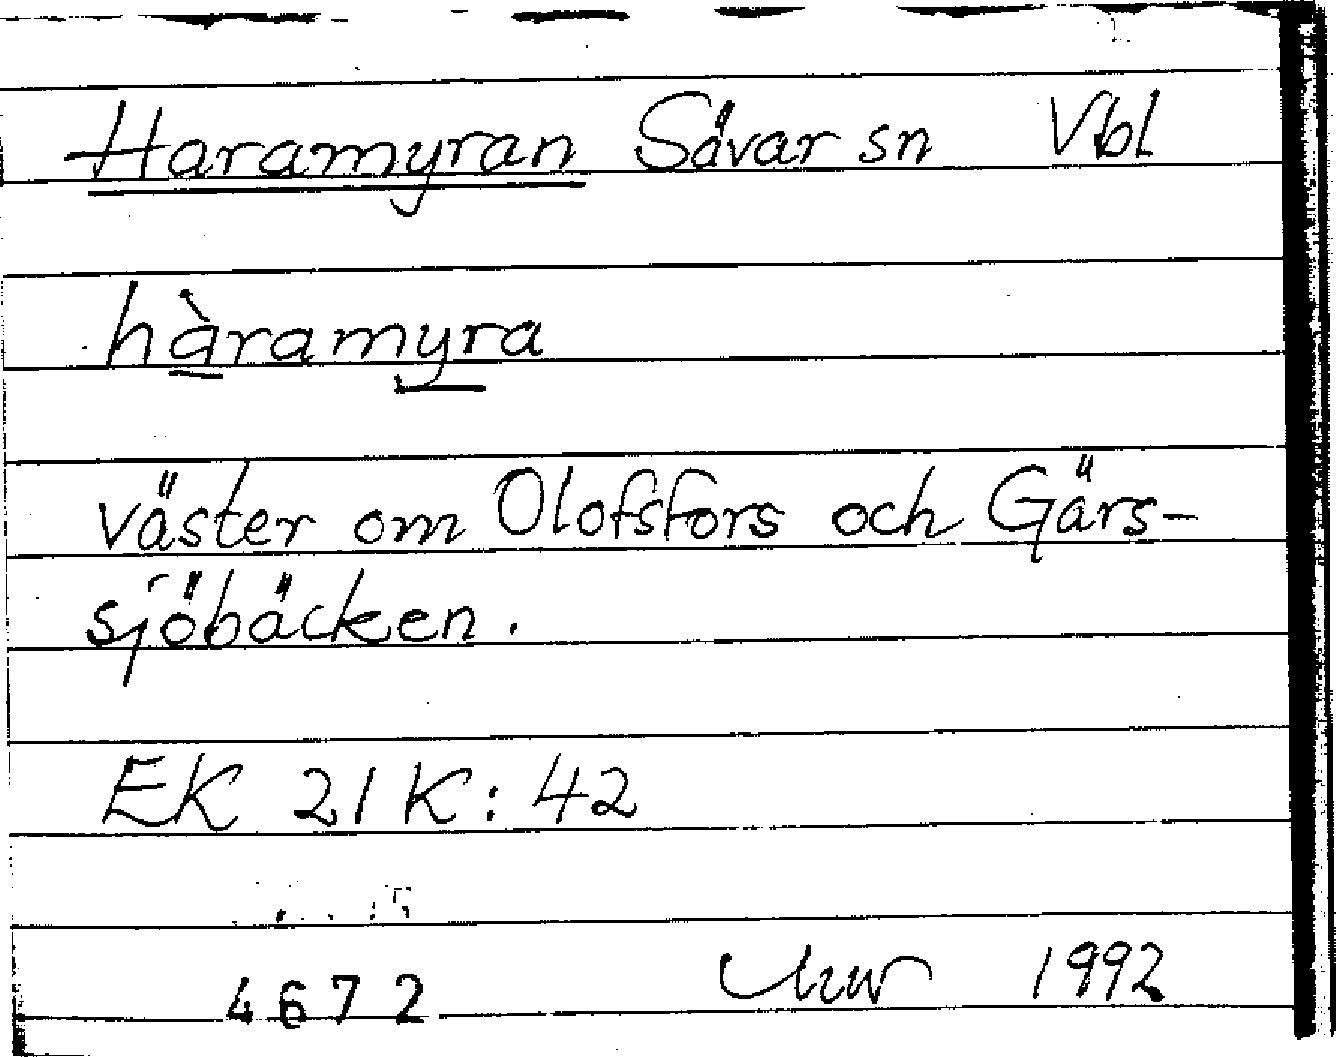 Haramyran Sävar sn Vbl
hàramyra
väster om Olofsfors och Gärs-
sjöbäcken.
EK 21 K: 42
4672 1992